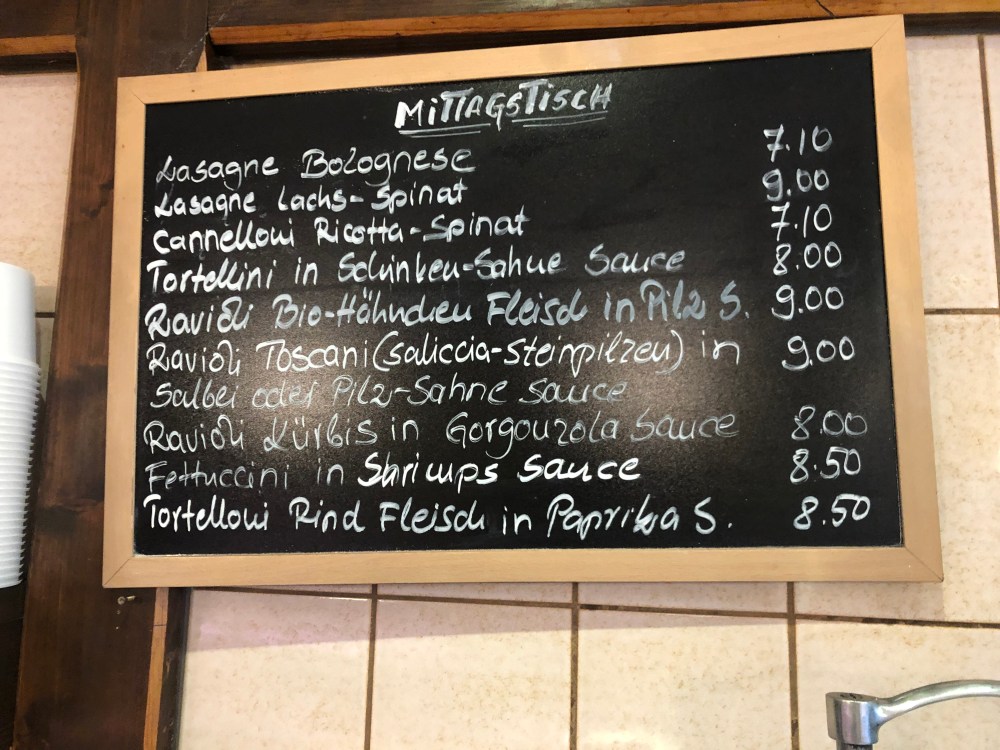 MITTAGSTISCH
Lasagne Bolognese 7.10
Lasagne Lachs-Spinat 9.00
Cannelloni Ricotta-Spinat 7.10
Tortellini in Schinken-Sahne Sauce 8.00
Ravioli Bio-Hähnchen Fleisch in Pilz S. 9.00
Ravioli Toscani (Saliccia-Steinpilzen) in 9.00
Salbei oder Pilz-Sahne Sauce
Ravioli Kürbis in Gorgonzola Sauce 8.00
Fettuccini in Shrimps Sauce 8.50
Tortelloni Rind Fleisch in Paprika S. 8.50